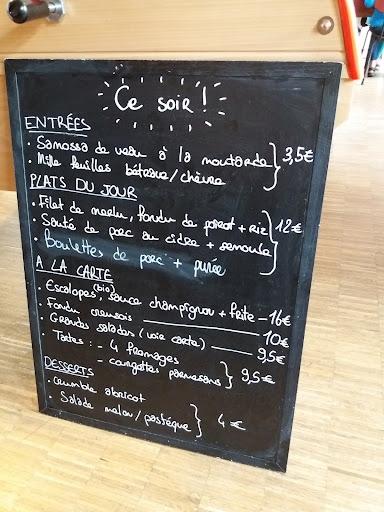 Ce soir !
ENTRÉES
. Samossa de veau à la moutarde } 3,5€
. Mille feuilles béterave/chèvre
PLATS DU JOUR
. Filet de merlu, fondu de poireot + Riz } 12€
. Sauté de porc au cidre + semoule
. Boulettes de porc + purée
A LA CARTE
. Escalopes (bio), sauce champignon + frite - 16€
. Fondu creusois 10€
. Grandes salades (voir carte) 9,5€
. Tartes : - 4 fromages } 9,5€
- courgettes parmesans
DESSERTS
. crumble abricot } 4€
. Salade melon/pastèque